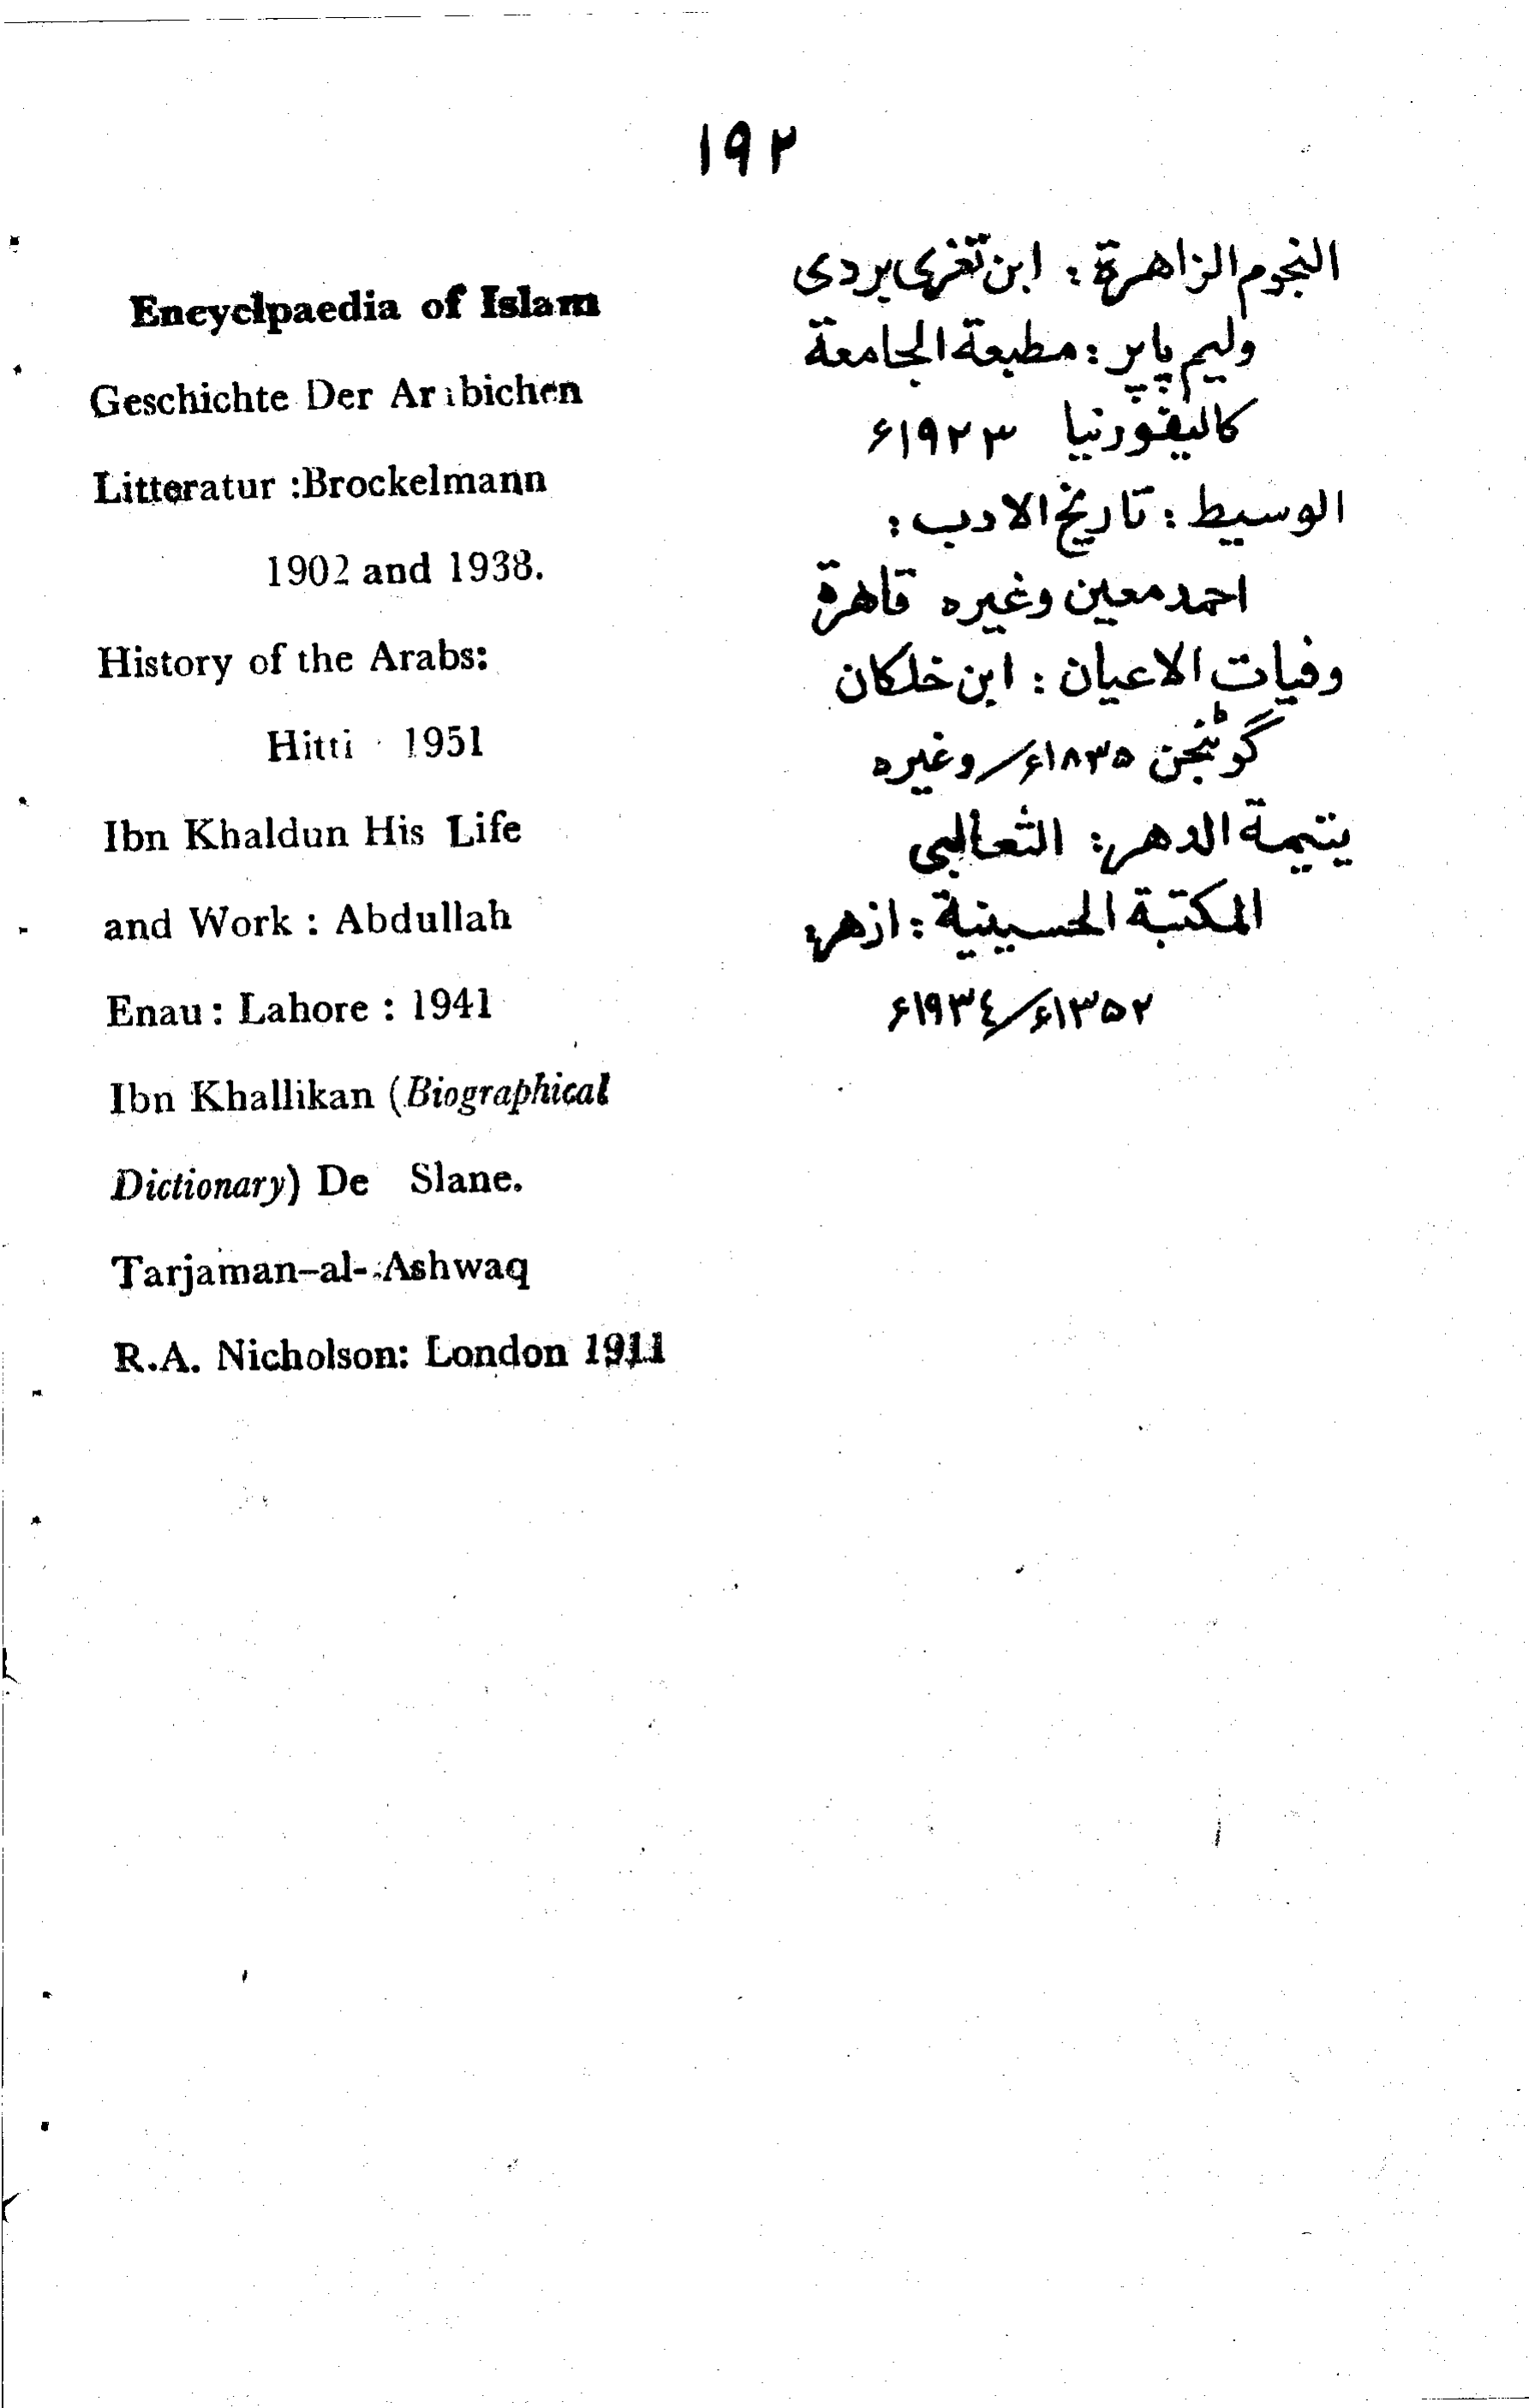 ۱۹۲
النجوم الزاهرة : ابن تغری بردی
ولیم پاپر : مطبعة الجامعة
کالیفورنیا ۱۹۲۳ء
الوسیط : تاریخ الادب :
احمد معین وغیره قاهرة
وفیات الاعیان : ابن خلکان
گوٹنجن ۱۸۳۵ء/وغیره
یتیمة الدهر : الثعالبی
المکتبة الحسینیة : ازهر :
۱۳۵۲ء/۱۹۳٤ء
Encyclpaedia of Islam
Geschichte Der Arabichen
Litteratur :Brockelmann
1902 and 1938.
History of the Arabs:
Hitti 1951
Ibn Khaldun His Life
and Work : Abdullah
Enau : Lahore : 1941
Ibn Khallikan (Biographical
Dictionary) De Slane.
Tarjaman-al-Ashwaq
R.A. Nicholson: London 1911